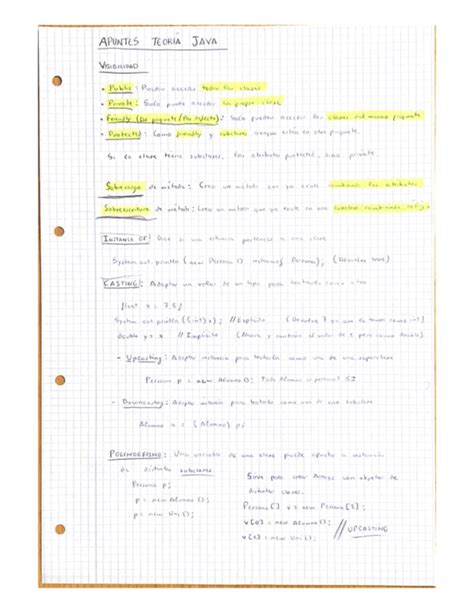 APUNTES TEORÍA JAVA
VISIBILIDAD
- Public: Pueden acceder todas las clases.
- Private: Solo puede acceder la propia clase.
- Friendly (De paquete/Por defecto): Solo pueden acceder las clases del mismo paquete.
- Protected: Como friendly y subclases aunque estén en otro paquete.
Si la clase tiene subclases, los atributos protected, sino private.
Sobrecarga de método: Crear un método que ya existe cambiando los atributos
Sobreescritura de método: Crear un método que ya existe en una subclase cambiando código
INSTANCE OF: Dice si una instancia pertenece a una clase
System.out.println (new Persona () instanceof Persona); (Devuelve true)
CASTING: Adaptar un valor de un tipo para tratarlo como otro
float x = 7,5;
System.out.println ((int) x); // Explícito (Devuelve 7 ya que lo toma como int)
double y = x // Implícito (Ahora y contiene el valor de x pero como double)
- Upcasting: Adaptar instancia para tratarla como una de una superclase
Persona p = new Alumno (); ¿Un Alumno es persona? SI
- Downcasting: Adaptar instancia para tratarla como una de una subclase
Alumno a = (Alumno) p;
POLIMORFISMO: Una variable de una clase puede apuntar a instancias
de distintas subclases
Persona p;
p = new Alumno ();
p = new Uni ();
Sirve para crear Arrays con objetos de
distintas clases.
Persona [] v = new Persona [3];
v[0] = new Alumno ();
v[1] = new Uni ();
// UPCASTING